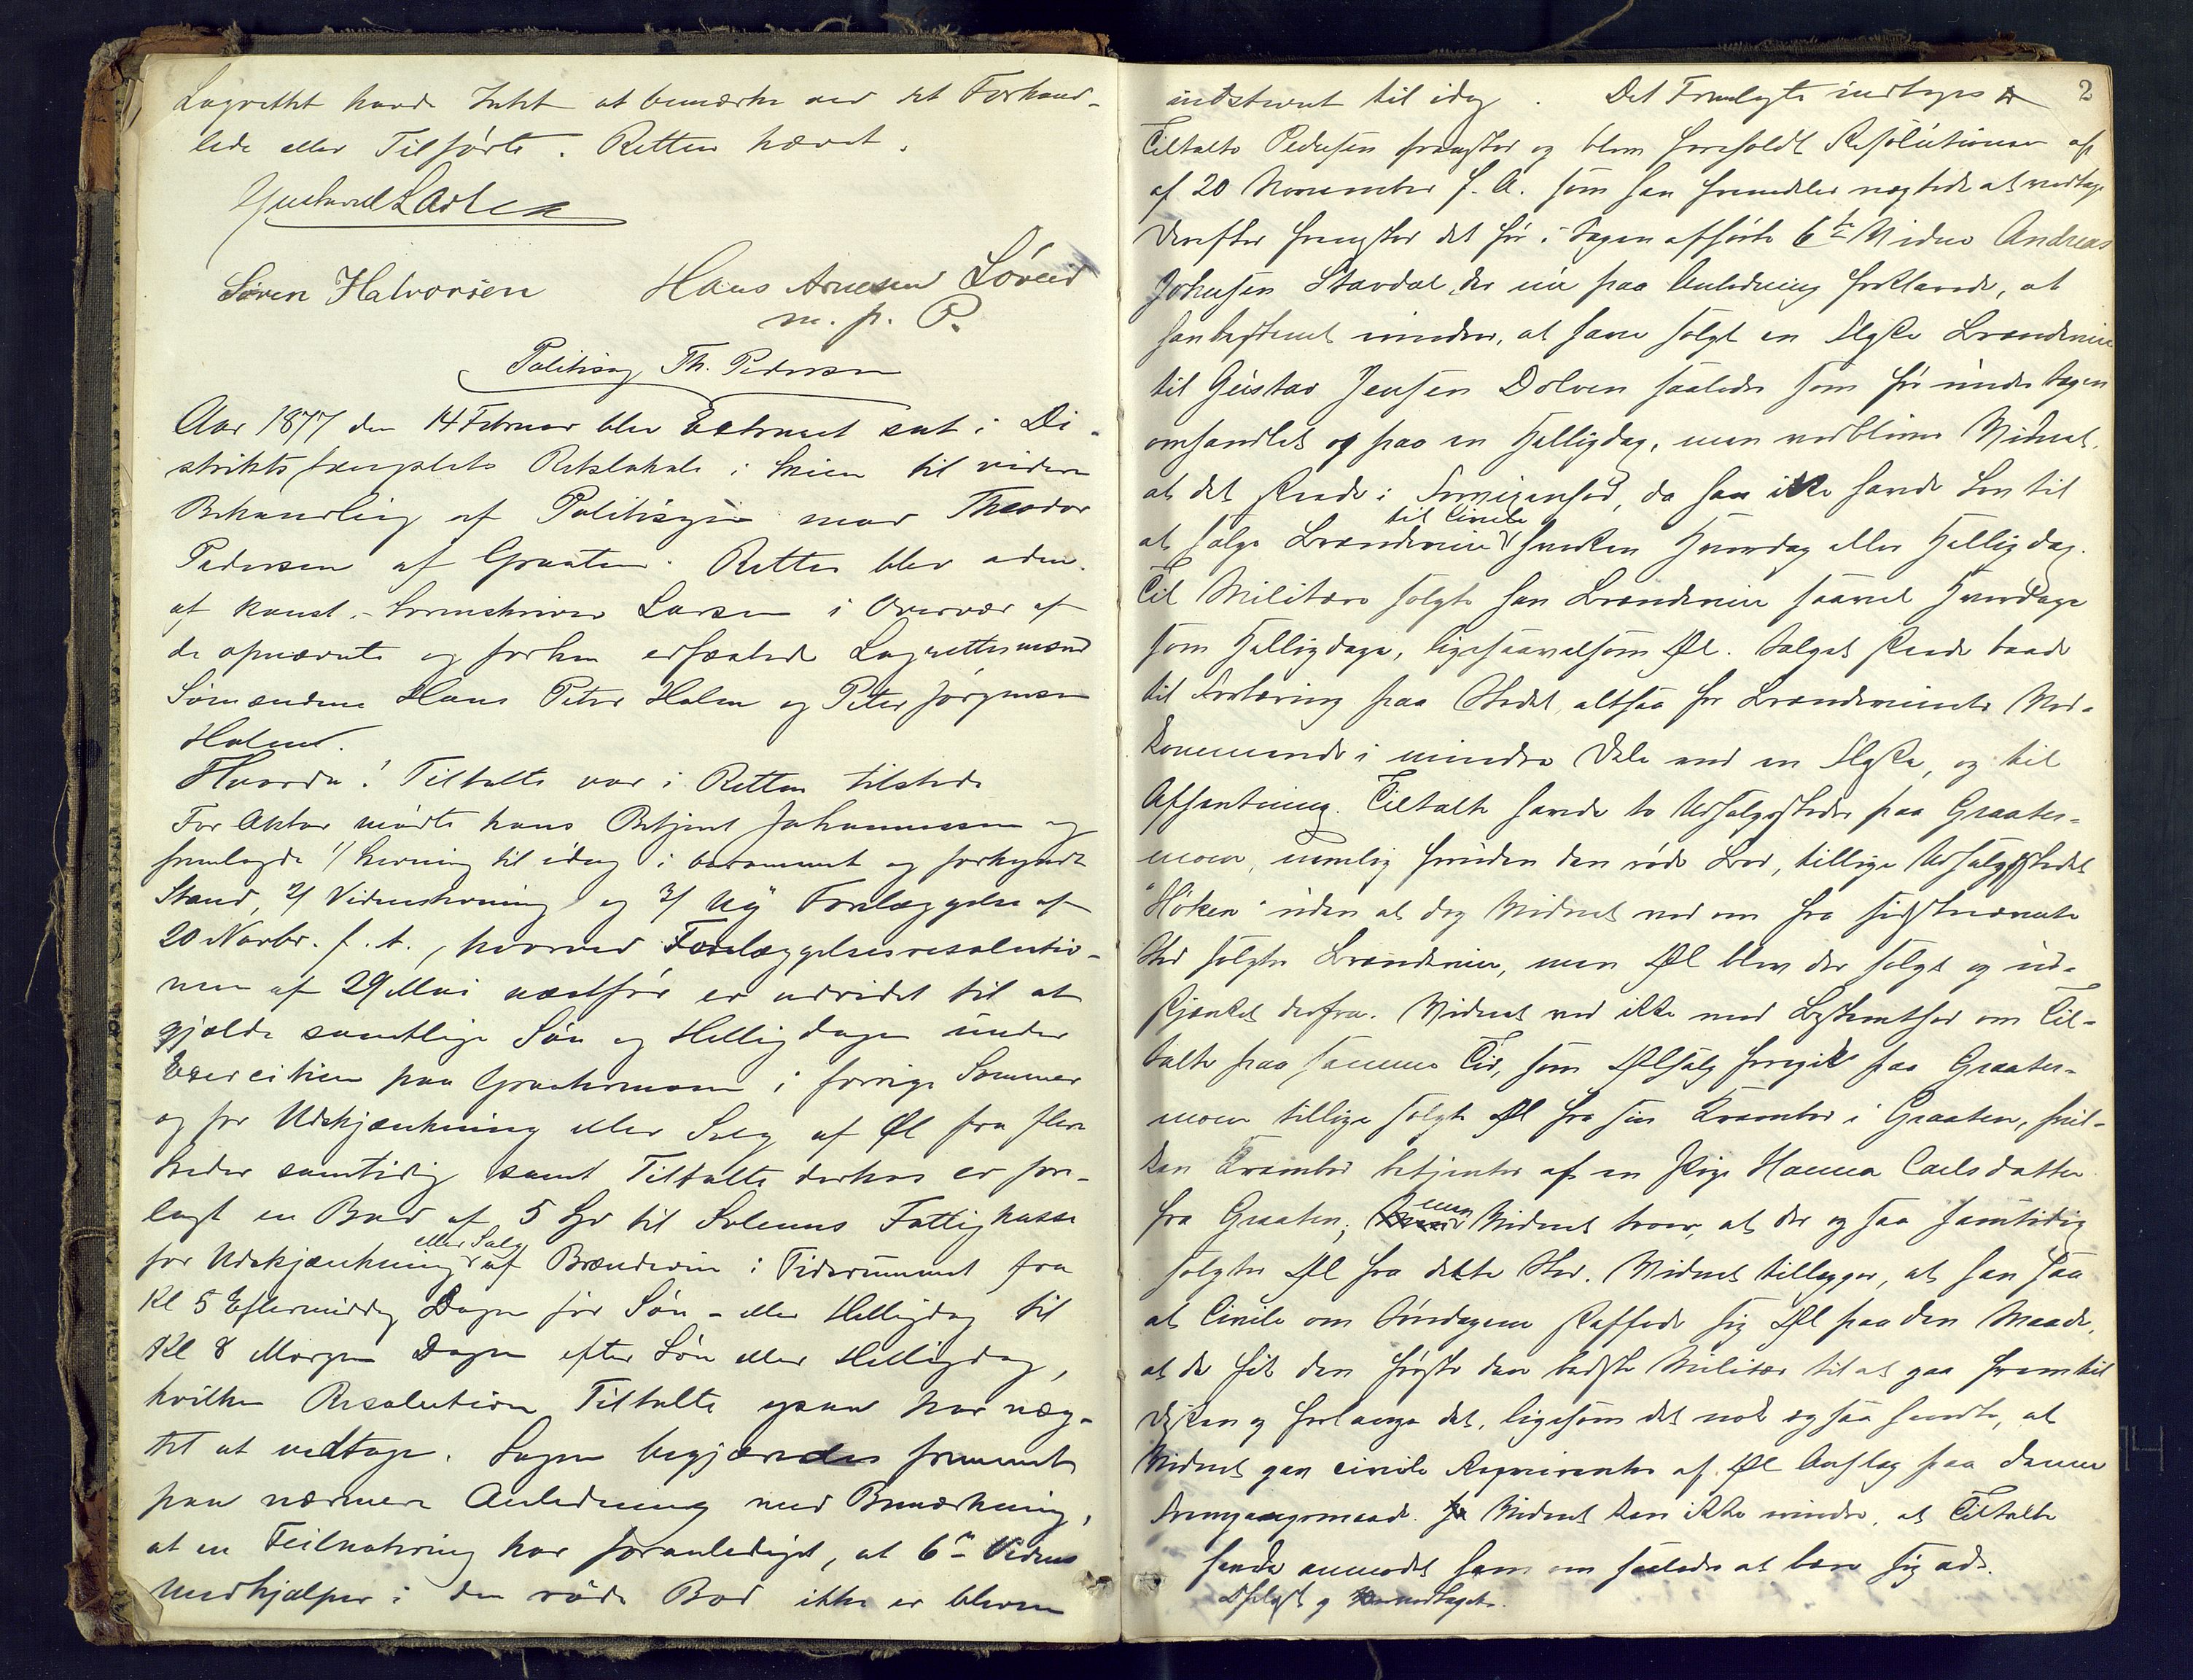 Lagrettet havde Intet at bemærke ved det Forhand-
lede eller Tilførte. Retten hævet.
Gustav Larsen
Søren Halvorsen Hans Arnesen Løveid
m. p. P.
Politisag Th. Pedersen
Aar 1877 den 14 Februar blev Extraret sat i Di-
striktsfængslets Retslokale i Skien til videre
Behandling af Politisagen mod Theodor
Pedersen af Graaten. Retten blev adm.
af konst. Sorenskriver Larsen i Overvær af
de opnævnte og forhen edfæstede Lagrettesmænd
Sømændene Hans Peter Holm og Peter Jørgensen
Holm.
Hvorda! Tiltalte var i Retten tilstede
For Aktor mødte hans Betjent Johannessen og
fremlagde 1/ Stevning til idag i berammet og forkyndt
Stand, 2/ Vidnestevning og 3/ Ny Forelæggelse af
20 Novbr. f. A., hvorved Forelæggelsesresolutio-
nen af 29 Mai næstfør er udvidet til at
gjælde samtlige Søn og Helligdage under
Exercitien paa Graatenmoen i forrige Sommer
og for Udskjænkning eller Salg af Øl fra flere
Steder samtidig samt Tiltalte derhos er fore-
lagt en Bod af 5 Spd til Solums Fattigkasse
eller Salg
for Udskjænkning af Brændevin i Tidsrummet fra
Kl 5 Eftermiddag Dagen før Søn- eller Helligdag til
Kl 8 Morgen Dagen efter Søn eller Helligdag,
hvilken Resolution Tiltalte ogsaa har næg-
tet at vedtage. Sagen begjæredes fremmet
paa nærmere Anledning med Bemærkning,
at en Feilnotering har foranlediget, at 6te Vidnes
Medhjælper i den røde Bod ikke er bleven
2
indstevnt til idag. Det Fremlagte indtages
Tiltalte Pedersen fremstod og blev foreholdt Resolutionen af
af 20 November f. A. som han fremdeles nægtede at vedtage
Derefter fremstod det før i Sagen afhørte 6te Vidne Andreas
Johnsen Stavdal, der nu paa Anledning forklarede, at
han bestemt mindes, at have solgt en Flaske Brændeviin
til Gustav Jensen Dolven saaledes som før under Sagen
omhandlet og paa en Helligdag, men vedbliver Vidnet,
at det skede i Sovnigenhed, da han ikke havde Lov til
til Civile
at sælge Brændeviin hverken Hverdag eller Helligdag.
Til Militære solgte han Brændeviin saavel Hverdage
som Helligdage, ligesaavelsom Øl. Salget skede baade
til Fortæring paa Stedet, altsaa for Brændevinets Ved-
kommende i mindre Dele end en Flaske, og til
Afhentning. Tiltalte havde to Udsalgssteder paa Graaten-
moen, nemlig foruden den røde Bod, tillige Udsalgsstedet
"Höken" uden at dog Vidnet ved om fra sidstnævnte
Sted solgtes Brændeviin, men Øl blev der solgt og ud-
skjænket derfra. Vidnet ved ikke med Bestemthed om Til-
talte paa samme Tid, som Ølsalg foregik paa Graaten-
moen tillige solgte Øl fra sin Krambod i Graaten, hvil-
ken Krambod betjentes af en Pige Hanna Carlsdatter
men
fra Graaten; Vidnet troer, at der ogsaa samtidig
solgtes Øl fra dette Sted. Vidnet tillægger, at han saa
at Civile om Søndagene skaffede sig Øl paa den Maade,
at de fik den første den bedste Militær til at gaa frem til
Disken og forlange det, ligesom det nok ogsaa hendte, at
Vidnet gav civile Reqvirenter af Øl Anslag paa denne
Fremgangsmaade. Vidnet kan ikke mindes, at Tiltalte
havde anmodet ham om saaledes at bære sig ad.
Oplæst og vedtaget.